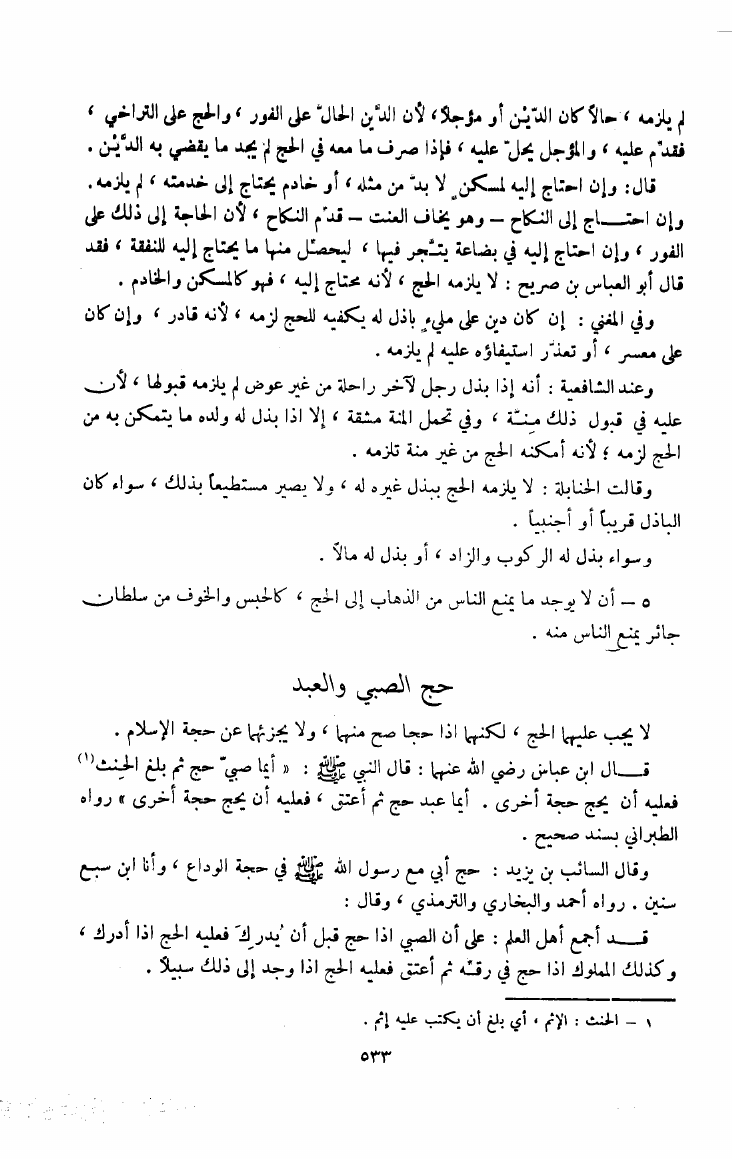 لم يلزمه ، حالاً كان الدّيْن أو مؤجلاً، لأن الدَّين الحالّ على الفور ، والحج على التراخي ،
فقدّم عليه ، والمؤجل يحلّ عليه ، فإذا صرف ما معه في الحج لم يجد ما يقضي به الدَّيْن .
قال : وإن احتاج إليه لمسكنٍ لا بدّ من مثله ، أو خادم يحتاج إلى خدمته ، لم يلزمه .
وإن احتــاج إلى النكاح – وهو يخاف العنت – قدّم النكاح ، لأن الحاجة إلى ذلك على
الفور ، وإن احتاج إليه في بضاعة يتّجر فيها ، ليحصّل منها ما يحتاج إليه للنفقة ، فقد
قال أبو العباس بن صريح : لا يلزمه الحج ، لأنه محتاج إليه ، فهو كالمسكن والخادم .
وفي المغني : إن كان دين على مليءٍ باذل له يكفيه للحج لزمه ، لأنه قادر ، وإن كان
على معسر ، أو تعذّر استيفاؤه عليه لم يلزمه .
وعند الشافعية : أنه إذا بذل رجل لآخر راحلة من غير عوض لم يلزمه قبولها ، لأن
عليه في قبول ذلك منّة ، وفي تحمل المنة مشقة ، إلا اذا بذل له ولده ما يتمكن به من
الحج لزمه ؛ لأنه أمكنه الحج من غير منة تلزمه .
وقالت الحنابلة : لا يلزمه الحج ببذل غيره له ، ولا يصير مستطيعاً بذلك ، سواء كان
الباذل قريباً أو أجنبياً .
وسواء بذل له الركوب والزاد ، أو بذل له مالاً .
٥ – أن لا يوجد ما يمنع الناس من الذهاب إلى الحج ، كالحبس والخوف من سلطان
جائر يمنع الناس منه .
حج الصبي والعبد
لا يجب عليهما الحج ، لكنهما اذا حجا صح منهما ، ولا يجزئهما عن حجة الإسلام .
قــال ابن عباس رضي الله عنهما : قال النبي ﷺ : « أيما صبيّ حج ثم بلغ الحِنث(١)
فعليه أن يحج حجة أخرى . أيما عبد حج ثم أعتق ، فعليه أن يحج حجة أخرى » رواه
الطبراني بسند صحيح .
وقال السائب بن يزيد : حج أبي مع رسول الله ﷺ في حجة الوداع ، وأنا ابن سبع
سنين . رواه أحمد والبخاري والترمذي ، وقال :
قــد أجمع أهل العلم : على أن الصبي اذا حج قبل أن يُدرِكَ فعليه الحج اذا أدرك ،
وكذلك المملوك اذا حج في رقّه ثم أعتق فعليه الحج اذا وجد إلى ذلك سبيلاً .
١ – الحنث : الإثم ، أي بلغ أن يكتب عليه إثم .
٥٣٣